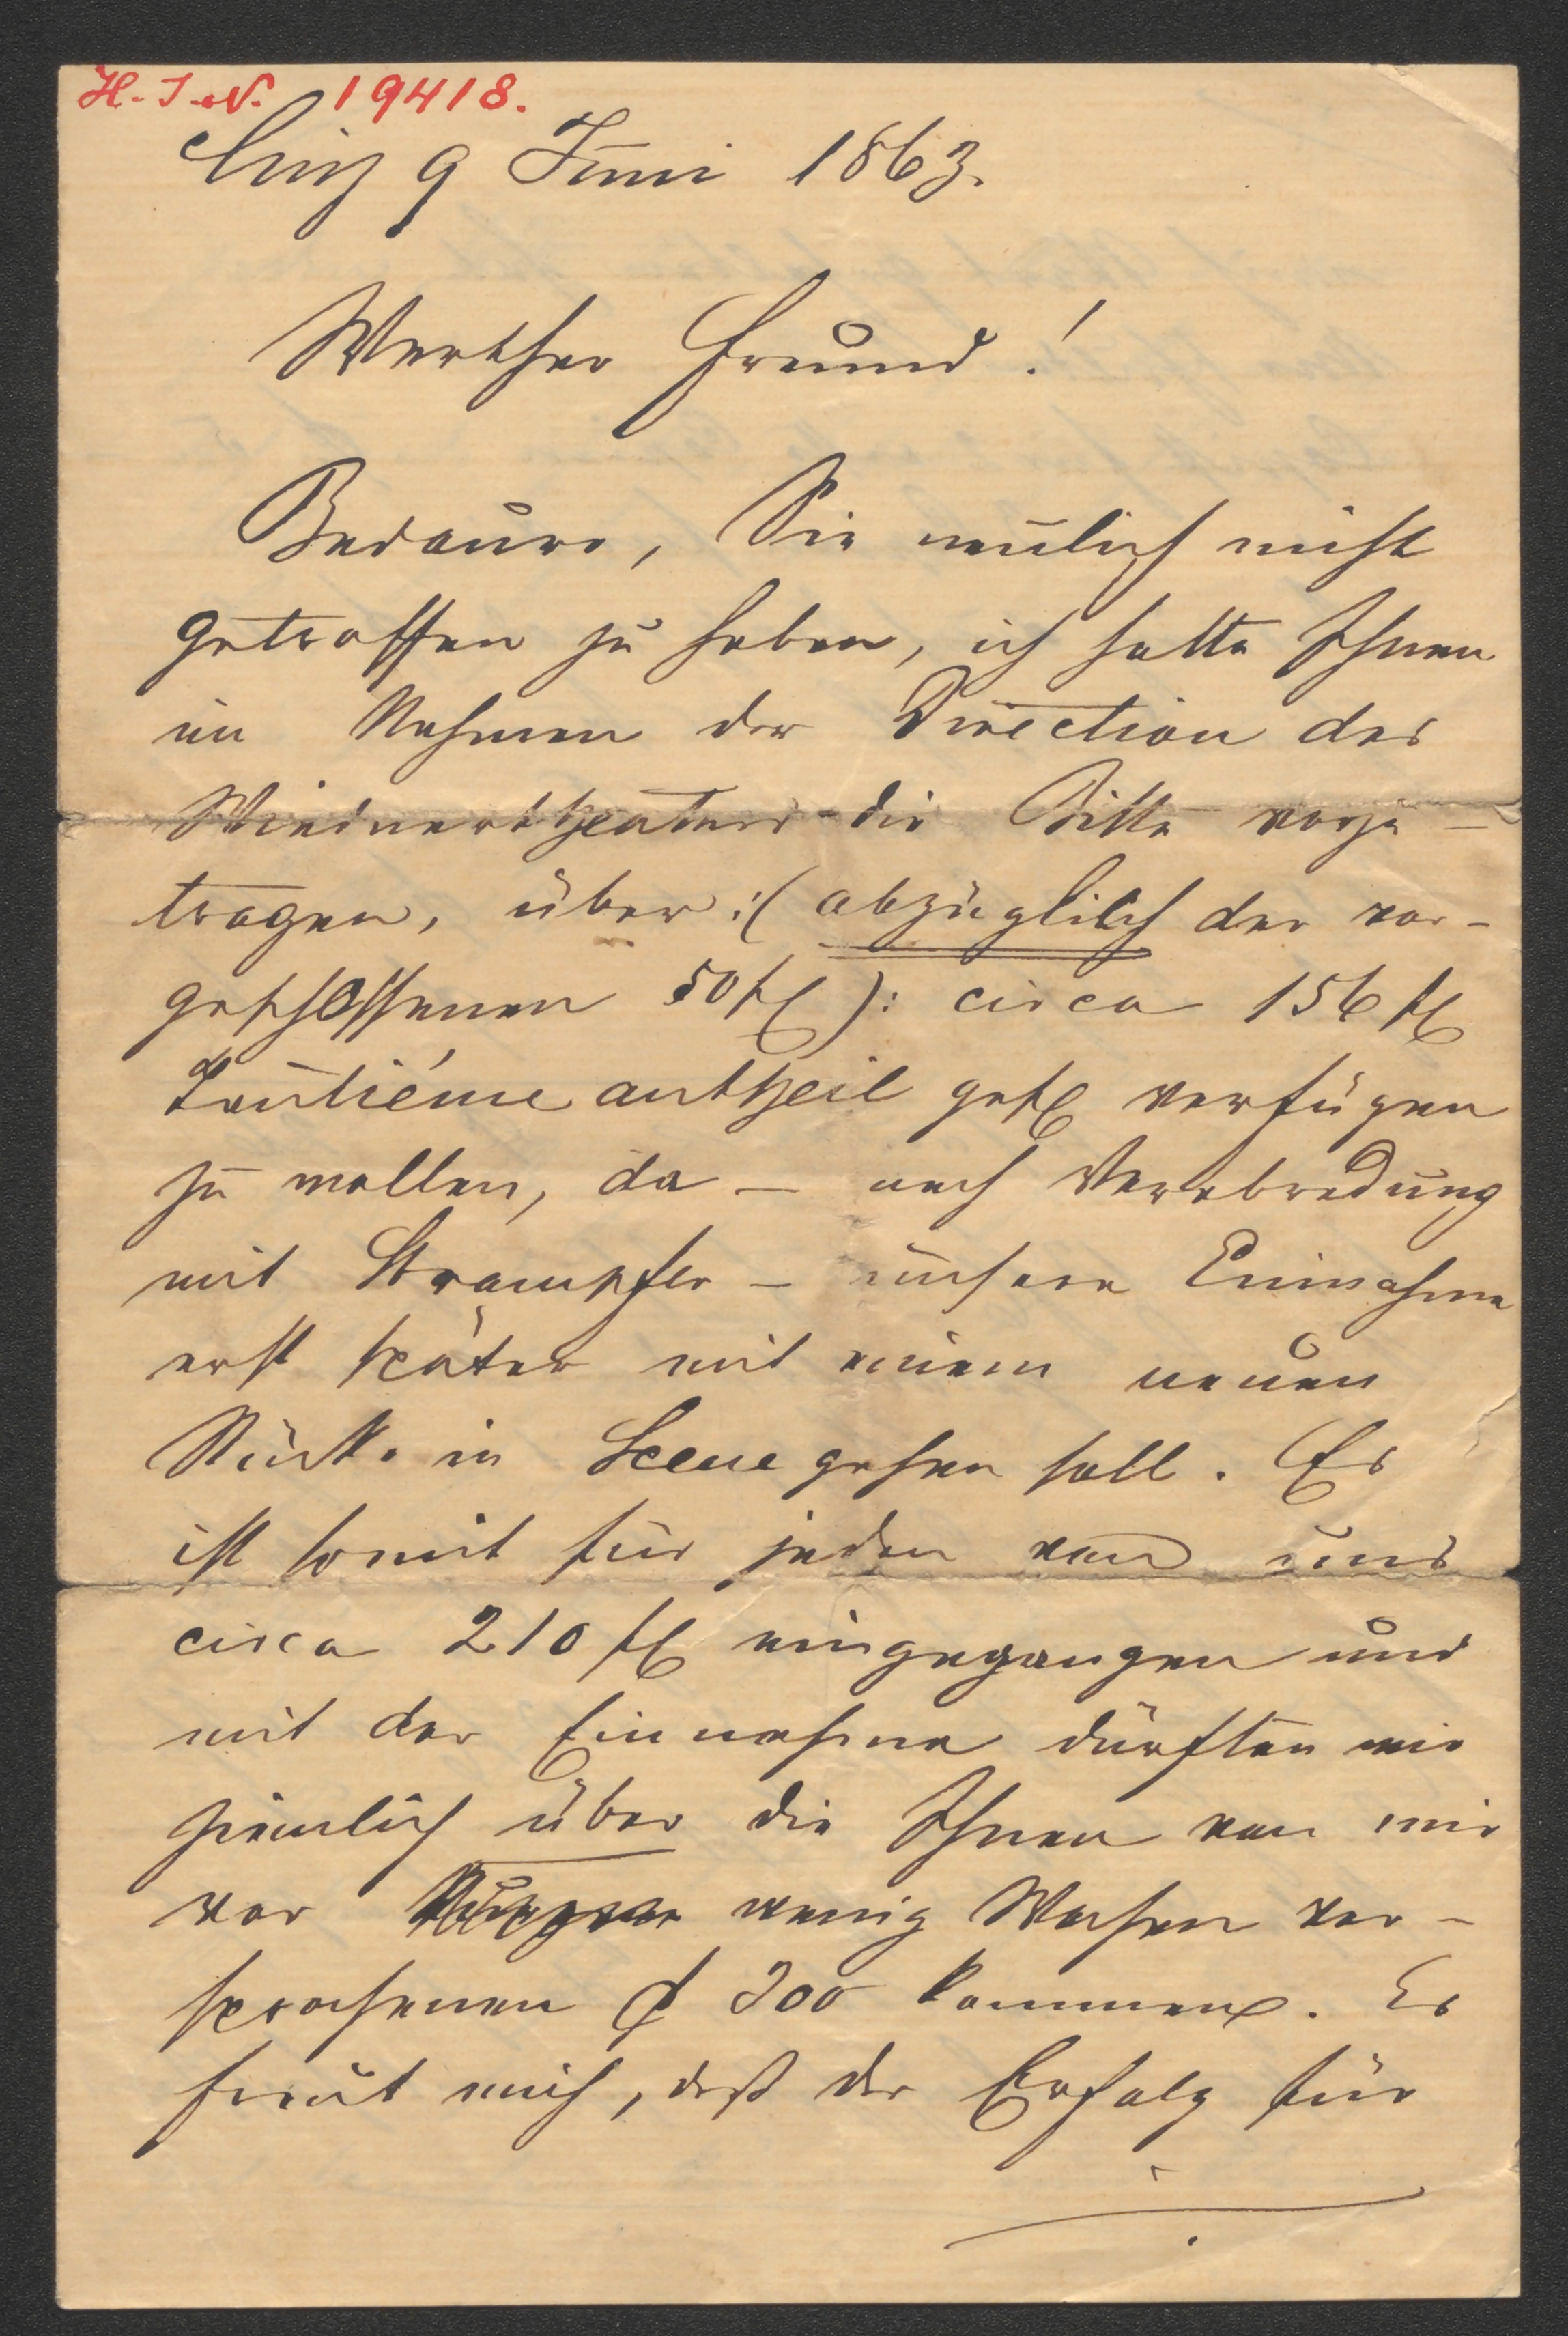 H. I. N. 19418.
Linz 9 Juni 1863.
Werther Freund!
Bedaure, Sie neulich nicht
getroffen zu haben, ich hatte Ihnen
im Nahmen der Direction des
Wiednertheaters die Bitte vorzu-
tragen, über :( abzüglich der vor-
geschossenen 50 fl ): circa 156 fl
Tantiéme antheil gefl verfügen
zu wollen, da – nach Verabredung
mit Strampfer – unsere Einnahme
erst später mit einem neuen
Stücke in Scene gehen soll. Es
ist somit für jeden von uns
circa 210 fl eingegangen und
mit der Einnahme dürften wir
ziemlich über die Ihnen von mir
vor wenig Wochen ver-
sprochenen f 300 kommen. Es
freut mich, daß der Erfolg für